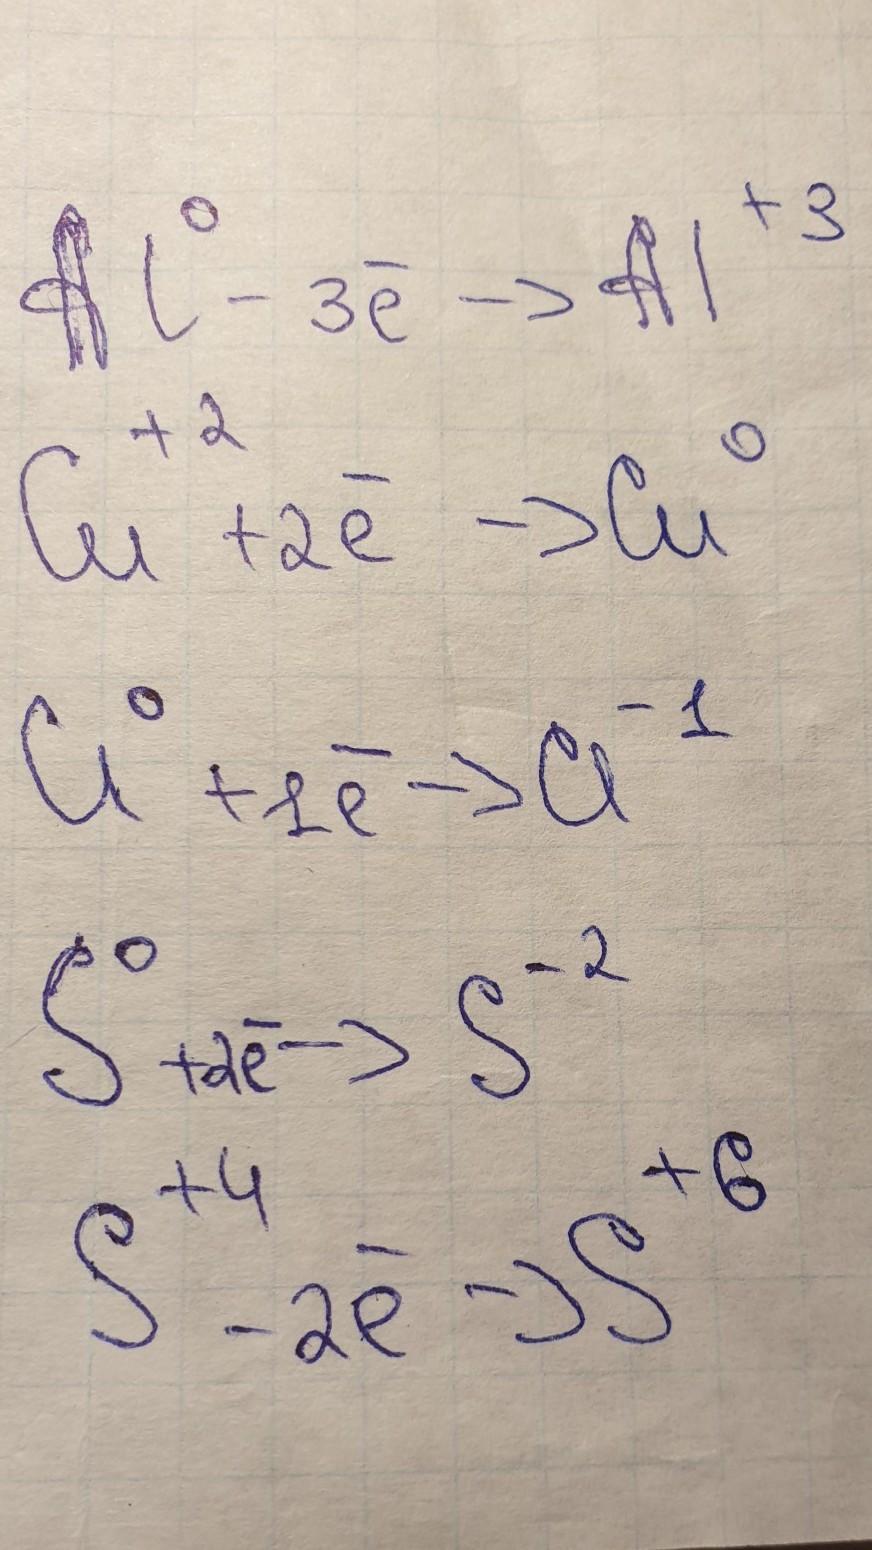 Al⁰ - 3ē → Al⁺³
Cu⁺² + 2ē → Cu⁰
Cl⁰ + 1ē → Cl⁻¹
S⁰ + 2ē → S⁻²
S⁺⁴ - 2ē → S⁺⁶